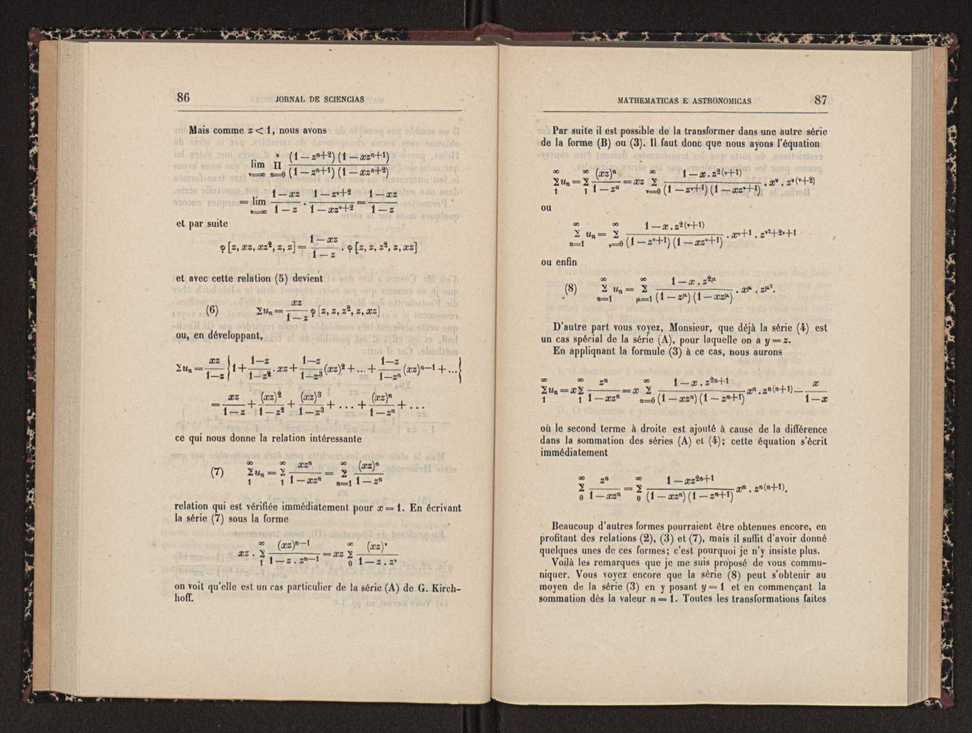 86 JORNAL DE SCIENCIAS
Mais comme z < 1, nous avons
lim_{ν=∞} Π_{n=0}^{ν} (1 — z^{n+2}) (1 — xz^{n+1}) / (1 — z^{n+1}) (1 — xz^{n+2})
= lim_{ν=∞} (1 — xz)/(1 — z) · (1 — z^{ν+2})/(1 — xz^{ν+2}) = (1 — xz)/(1 — z)
et par suite
φ [z, xz, xz², z, z] = (1 — xz)/(1 — z) . φ [z, z, z², z, xz]
et avec cette relation (5) devient
(6) Σu_n = xz/(1 — z) φ [z, z, z², z, xz]
ou, en développant,
Σu_n = xz/(1—z) { 1 + (1—z)/(1—z²) . xz + (1—z)/(1—z³) (xz)² + ... + (1—z)/(1—z^n) (xz)^{n—1} + ... }
= xz/(1—z) + (xz)²/(1—z²) + (xz)³/(1—z³) + . . . + (xz)^n/(1—z^n) + . . .
ce qui nous donne la relation intéressante
(7) Σ_1^∞ u_n = Σ_1^∞ xz^n/(1 — xz^n) = Σ_{n=1}^∞ (xz)^n/(1 — z^n)
relation qui est vérifiée immédiatement pour x = 1. En écrivant
la série (7) sous la forme
xz . Σ_1^∞ (xz)^{n—1}/(1 — z . z^{n—1}) = xz Σ_0^∞ (xz)^ν/(1 — z . z^ν)
on voit qu'elle est un cas particulier de la série (A) de G. Kirch-
hoff.
MATHEMATICAS E ASTRONOMICAS 87
Par suite il est possible de la transformer dans une autre série
de la forme (B) ou (3). Il faut donc que nous ayons l'équation
Σ_1^∞ u_n = Σ_1^∞ (xz)^n/(1 — z^n) = xz Σ_{ν=0}^∞ (1 — x . z^{2(ν+1)})/((1 — z^{ν+1}) (1 — xz^{ν+1})) . x^ν . z^{ν(ν+2)}
ou
Σ_{n=1}^∞ u_n = Σ_{ν=0}^∞ (1 — x . z^{2(ν+1)})/((1 — z^{ν+1}) (1 — xz^{ν+1})) . x^{ν+1} . z^{ν²+2ν+1}
ou enfin
(8) Σ_{n=1}^∞ u_n = Σ_{μ=1}^∞ (1 — x . z^{2μ})/((1 — z^μ) (1 — xz^μ)) . x^μ . z^{μ²}.
D'autre part vous voyez, Monsieur, que déjà la série (4) est
un cas spécial de la série (A), pour laquelle on a y = z.
En appliqnant la formule (3) à ce cas, nous aurons
Σ_1^∞ u_n = x Σ_1^∞ z^n/(1 — xz^n) = x Σ_{n=0}^∞ (1 — x . z^{2n+1})/((1 — xz^n) (1 — z^{n+1})) x^n . z^{n(n+1)} — x/(1 — x)
où le second terme à droite est ajouté à cause de la différence
dans la sommation des séries (A) et (4); cette équation s'écrit
immédiatement
Σ_0^∞ z^n/(1 — xz^n) = Σ_0^∞ (1 — xz^{2n+1})/((1 — xz^n) (1 — z^{n+1})) x^n . z^{n(n+1)}.
Beaucoup d'autres formes pourraient être obtenues encore, en
profitant des relations (2), (3) et (7), mais il suffit d'avoir donné
quelques unes de ces formes; c'est pourquoi je n'y insiste plus.
Voilà les remarques que je me suis proposé de vous commu-
niquer. Vous voyez encore que la série (8) peut s'obtenir au
moyen de la série (3) en y posant y = 1 et en commençant la
sommation dès la valeur n = 1. Toutes les transformations faites